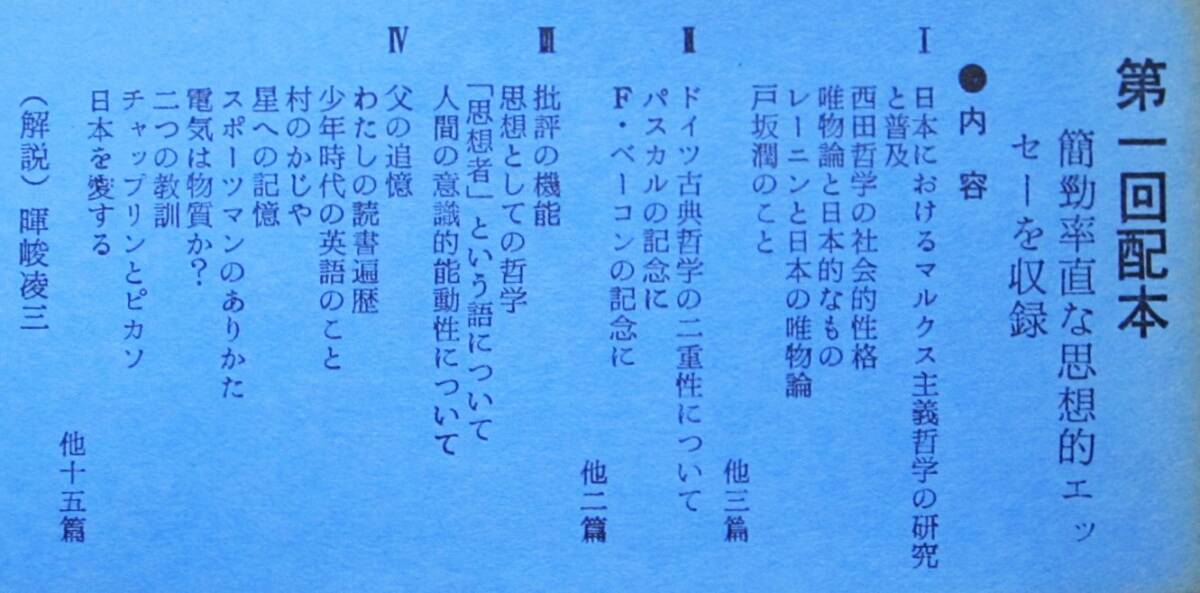 第一回配本
簡勁率直な思想的エッ
セーを収録
●内容
Ⅰ
日本におけるマルクス主義哲学の研究
と普及
西田哲学の社会的性格
唯物論と日本的なもの
レーニンと日本の唯物論
戸坂潤のこと
他三篇
Ⅱ
ドイツ古典哲学の二重性について
パスカルの記念に
F・ベーコンの記念に
他二篇
Ⅲ
批評の機能
思想としての哲学
「思想者」という語について
人間の意識的能動性について
Ⅳ
父の追憶
わたしの読書遍歴
少年時代の英語のこと
村のかじや
星への記憶
スポーツマンのありかた
電気は物質か?
二つの教訓
チャップリンとピカソ
日本を愛する
他十五篇
(解説)暉峻凌三